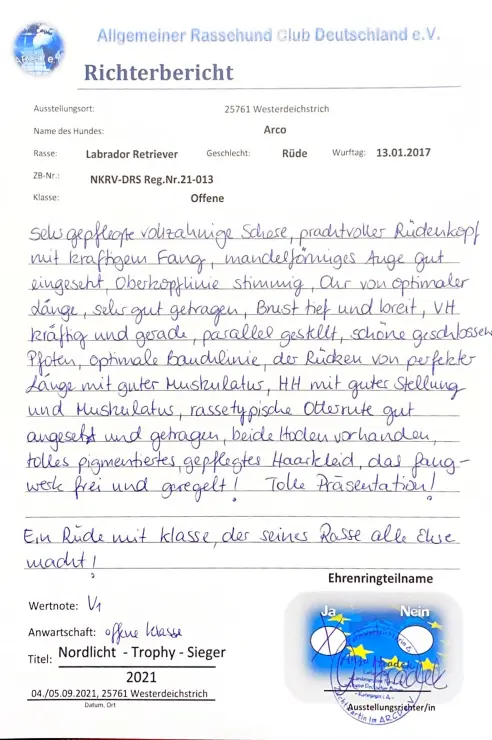 Allgemeiner Rassehund Club Deutschland e.V.
Richterbericht
Ausstellungsort: 25761 Westerdeichstrich
Name des Hundes: Arco
Rasse: Labrador Retriever Geschlecht: Rüde Wurftag: 13.01.2017
ZB-Nr.: NKRV-DRS Reg.Nr.21-013
Klasse: Offene
Sehr gepflegte vollzahnige Schere, prachtvoller Rüdenkopf
mit kräftigem Fang, mandelförmiges Auge gut
eingesetzt, Oberkopflinie stimmig, Ohr von optimaler
Länge, sehr gut getragen, Brust tief und breit, VH
kräftig und gerade, parallel gestellt, schöne geschlossen
Pfoten, optimale Bauchlinie, der Rücken von perfekter
Länge mit guter Muskulatur, HH mit guter Stellung
und Muskulatur, rassetypische Otterrute gut
angesetzt und getragen, beide Hoden vorhanden,
tolles pigmentiertes, gepflegtes Haarkleid, das Gang-
werk frei und geregelt! Tolle Präsentation!
Ein Rüde mit Klasse, der seines Rasse alle Ehre
macht!
Ehrenringteilname
Ja Nein
Wertnote: V1
Anwartschaft: offene Klasse
Titel: Nordlicht - Trophy - Sieger
2021
04./05.09.2021, 25761 Westerdeichstrich
Datum, Ort
Ausstellungsrichter/in